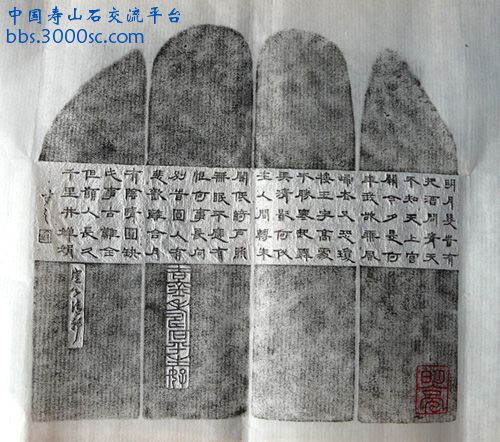 中国寿山石交流平台
bbs.3000sc.com
明月幾旹有
把酒問青天
不知天上宫
闕今夕是何
年我欲乘風
歸去又恐瓊
樓玉宇高處
不勝寒起舞
弄清影何似
在人間轉朱
閣低綺户照
無眠不應有
恨何事長向
别旹圓人有
悲歡離合月
有陰晴圓缺
此事古難全
但願人長久
千里共嬋娟